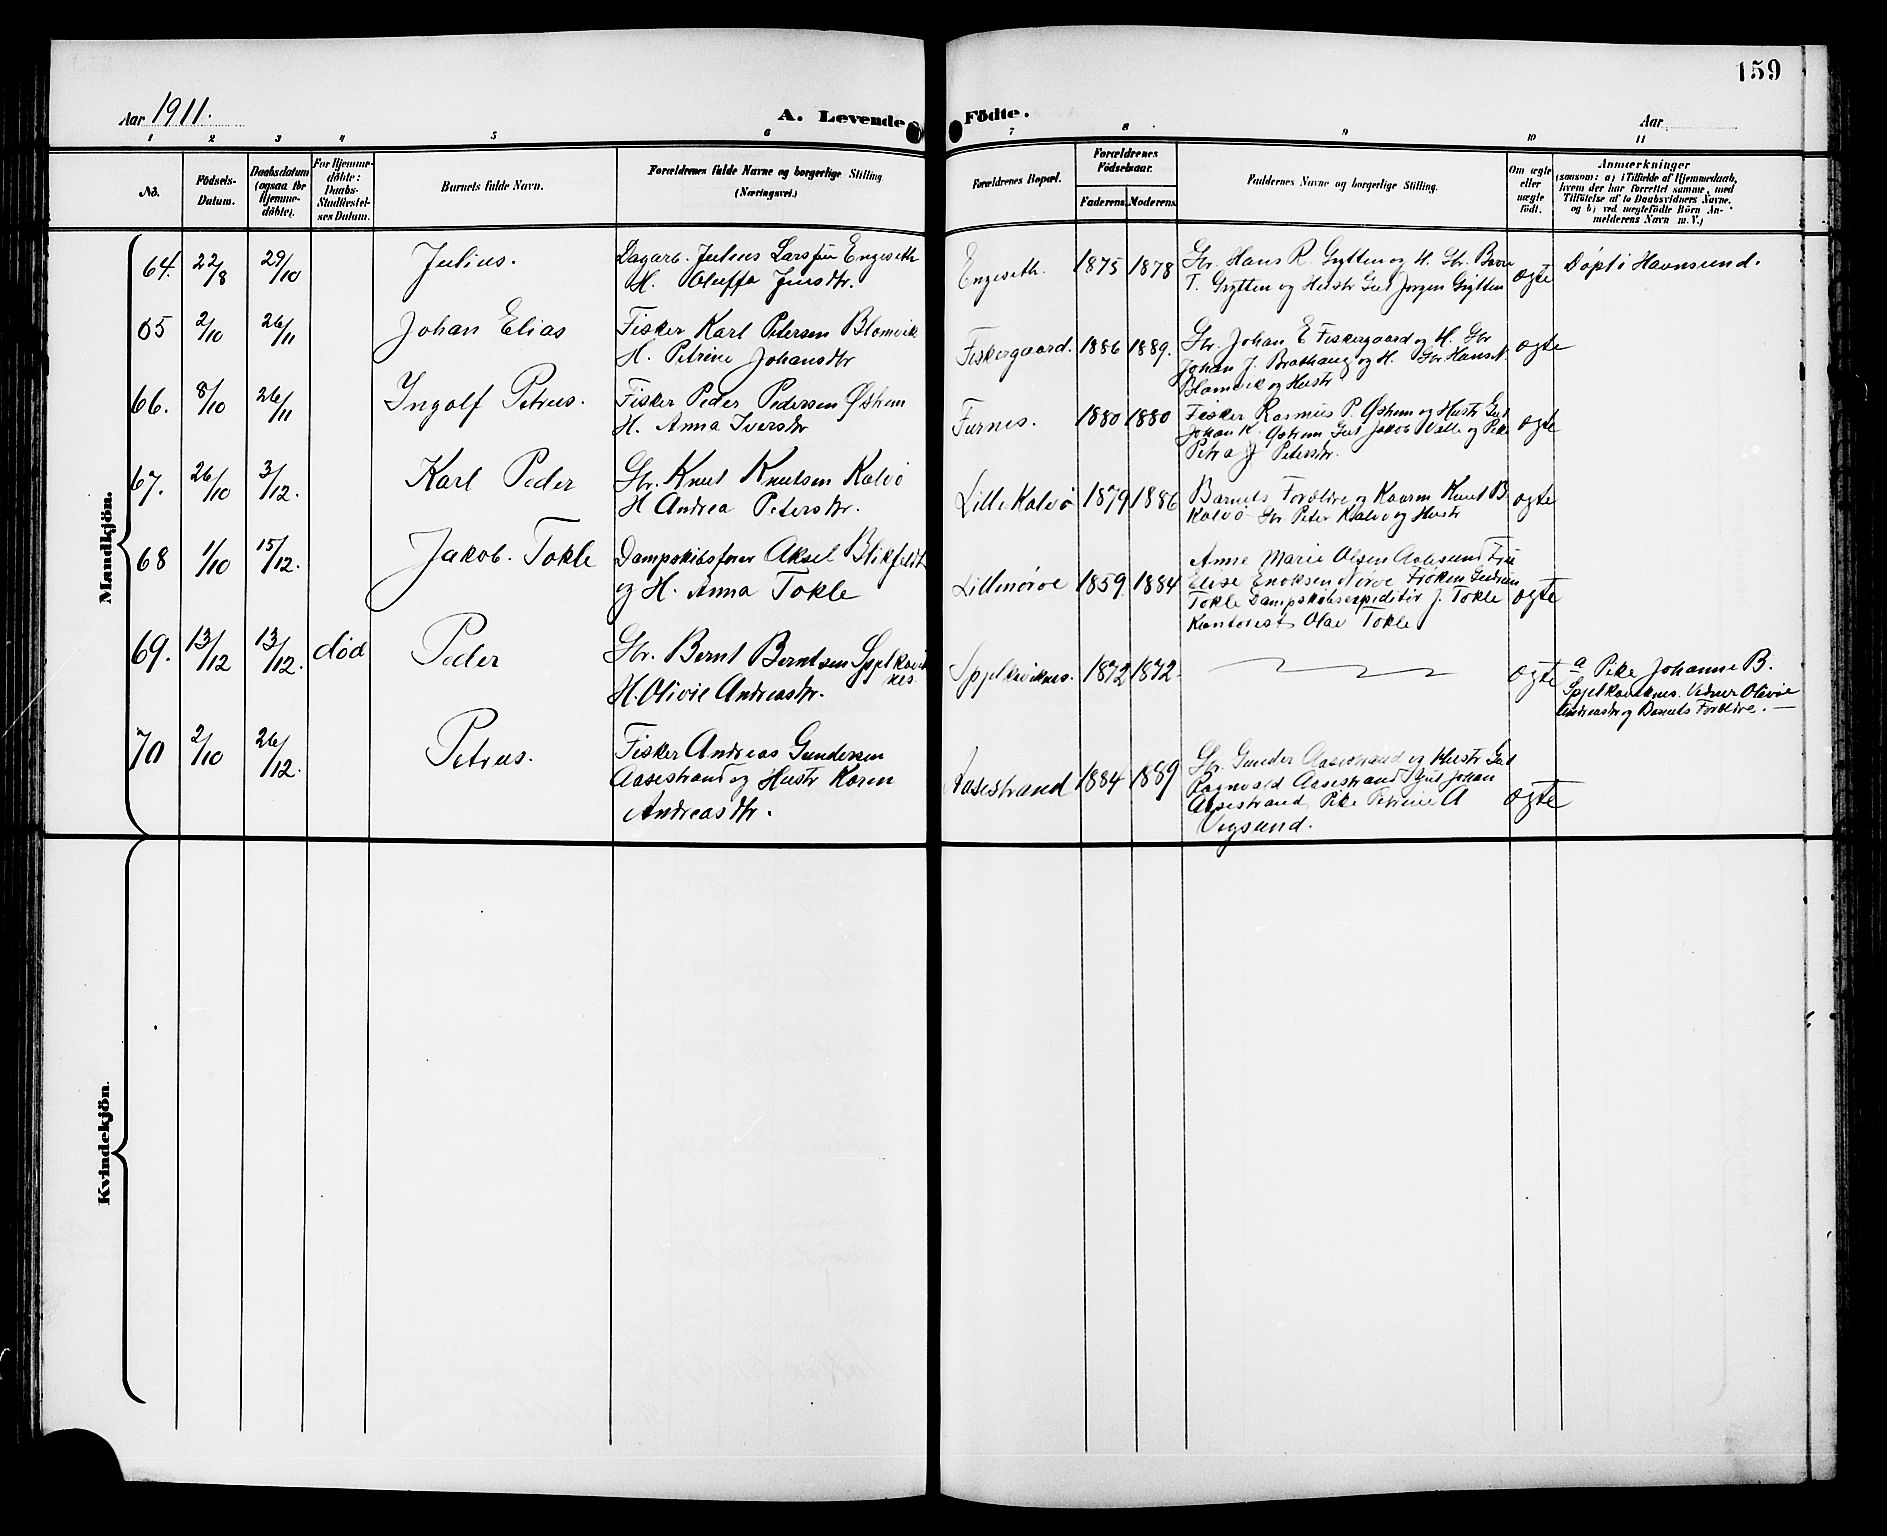 159
Aar 1911.
A. Levende Födte.
Aar
1 2 3 4 5 6 7 8 9 10 11
No.
Födsels-Datum.
Daabsdatum (ogsaa for Hjemme-döbte).
For Hjemme-döbte: Daabs-Stadfæstel-ses Datum.
Barnets fulde Navn.
Forældrenes fulde Navne og borgerlige Stilling (Næringsvei.)
Forældrenes Bopæl.
Forældrenes Födselsaar.
Faderens. Moderens.
Faddernes Navne og borgerlige Stilling.
Om ægte eller uægte födt.
Anmærkninger
(saasom: a) i Tilfælde af Hjemmedaab,
hvem der har forrettet samme, med
Tilföielse af to Daabsvidners Navne,
og b) ved uægtefödte Börn An-
melderens Navn m. V.)
Mandkjön.
64. 22/8 29/10 Julius. Dagarb. Julius Larssen Engeseth
H. Oluffa Jensdtr.
Engeseth. 1875 1878
Gbr. Hans R Grytten og H. Gbr.
T. Grytten og Hustr Gut Jörgen Grytten
ægte Döpt i Havnsund.
65 2/10 26/11 Johan Elias Fisker Karl Petersen Blomvik
H. Petrine Johansdtr
Fiskergaard. 1886 1889.
Gbr. Johan E Fiskergaard og H. Gbr
Johan J. Brathaug og H. Gbr Hans N.
Blomvik og Hustr
ægte
66. 8/10 26/11 Ingolf Petrus. Fisker Peder Pedersen Østrem
H. Anna Iversdtr
Furnes. 1880 1880
Fisker Rasmus P. Østrem og Hustr Gut
Johan K. Østrem Gut Jakob Valle og Pike
Petra J Petersdtr.
ægte
67. 26/10 3/12. Karl Peder Gbr. Knut Knutsen Kalvø
H Andrea Petersdtr.
Lille Kalvø 1879 1886
Barnets Forældre og Kaarm Knut B
Kalvø Gbr Peter Kalvø og Hustr
ægte
68 1/10 15/12. Jakob. Tokle Dampskibsfører Aksel Blikfeldt
og H. Anna Tokle
Lillenørve 1859 1884
Anne Marie Olsen Aalesund Fru
Elise Enoksen Nørve Frøken Gudrun
Tokle Dampskibsexpeditör J. Tokle
Kontorist Olav Tokle
ægte
69. 13/12 13/12. død Peder Gbr. Bernt Berntsen Spjelkavik
nes.
H. Olivie Andreasdtr.
Spjelkaviknes. 1872 1872.
ægte a Pike Johanne B.
Spjelkaviknes. Vidner Olivie
Andreasdtr og Barnets Forældre. —
70 2/10 26/12. Petrus. Fisker Andreas Gundersen
Aasestrand og Hustr Karen
Andreasdtr.
Aasestrand 1884 1889
Gbr. Gunder Aasestrand og Hustr Gut
Ragnvald Aasestrand Gut Johan
Aasestrand, Pike Petrine A
Vegsund.
ægte
Kvindekjön.